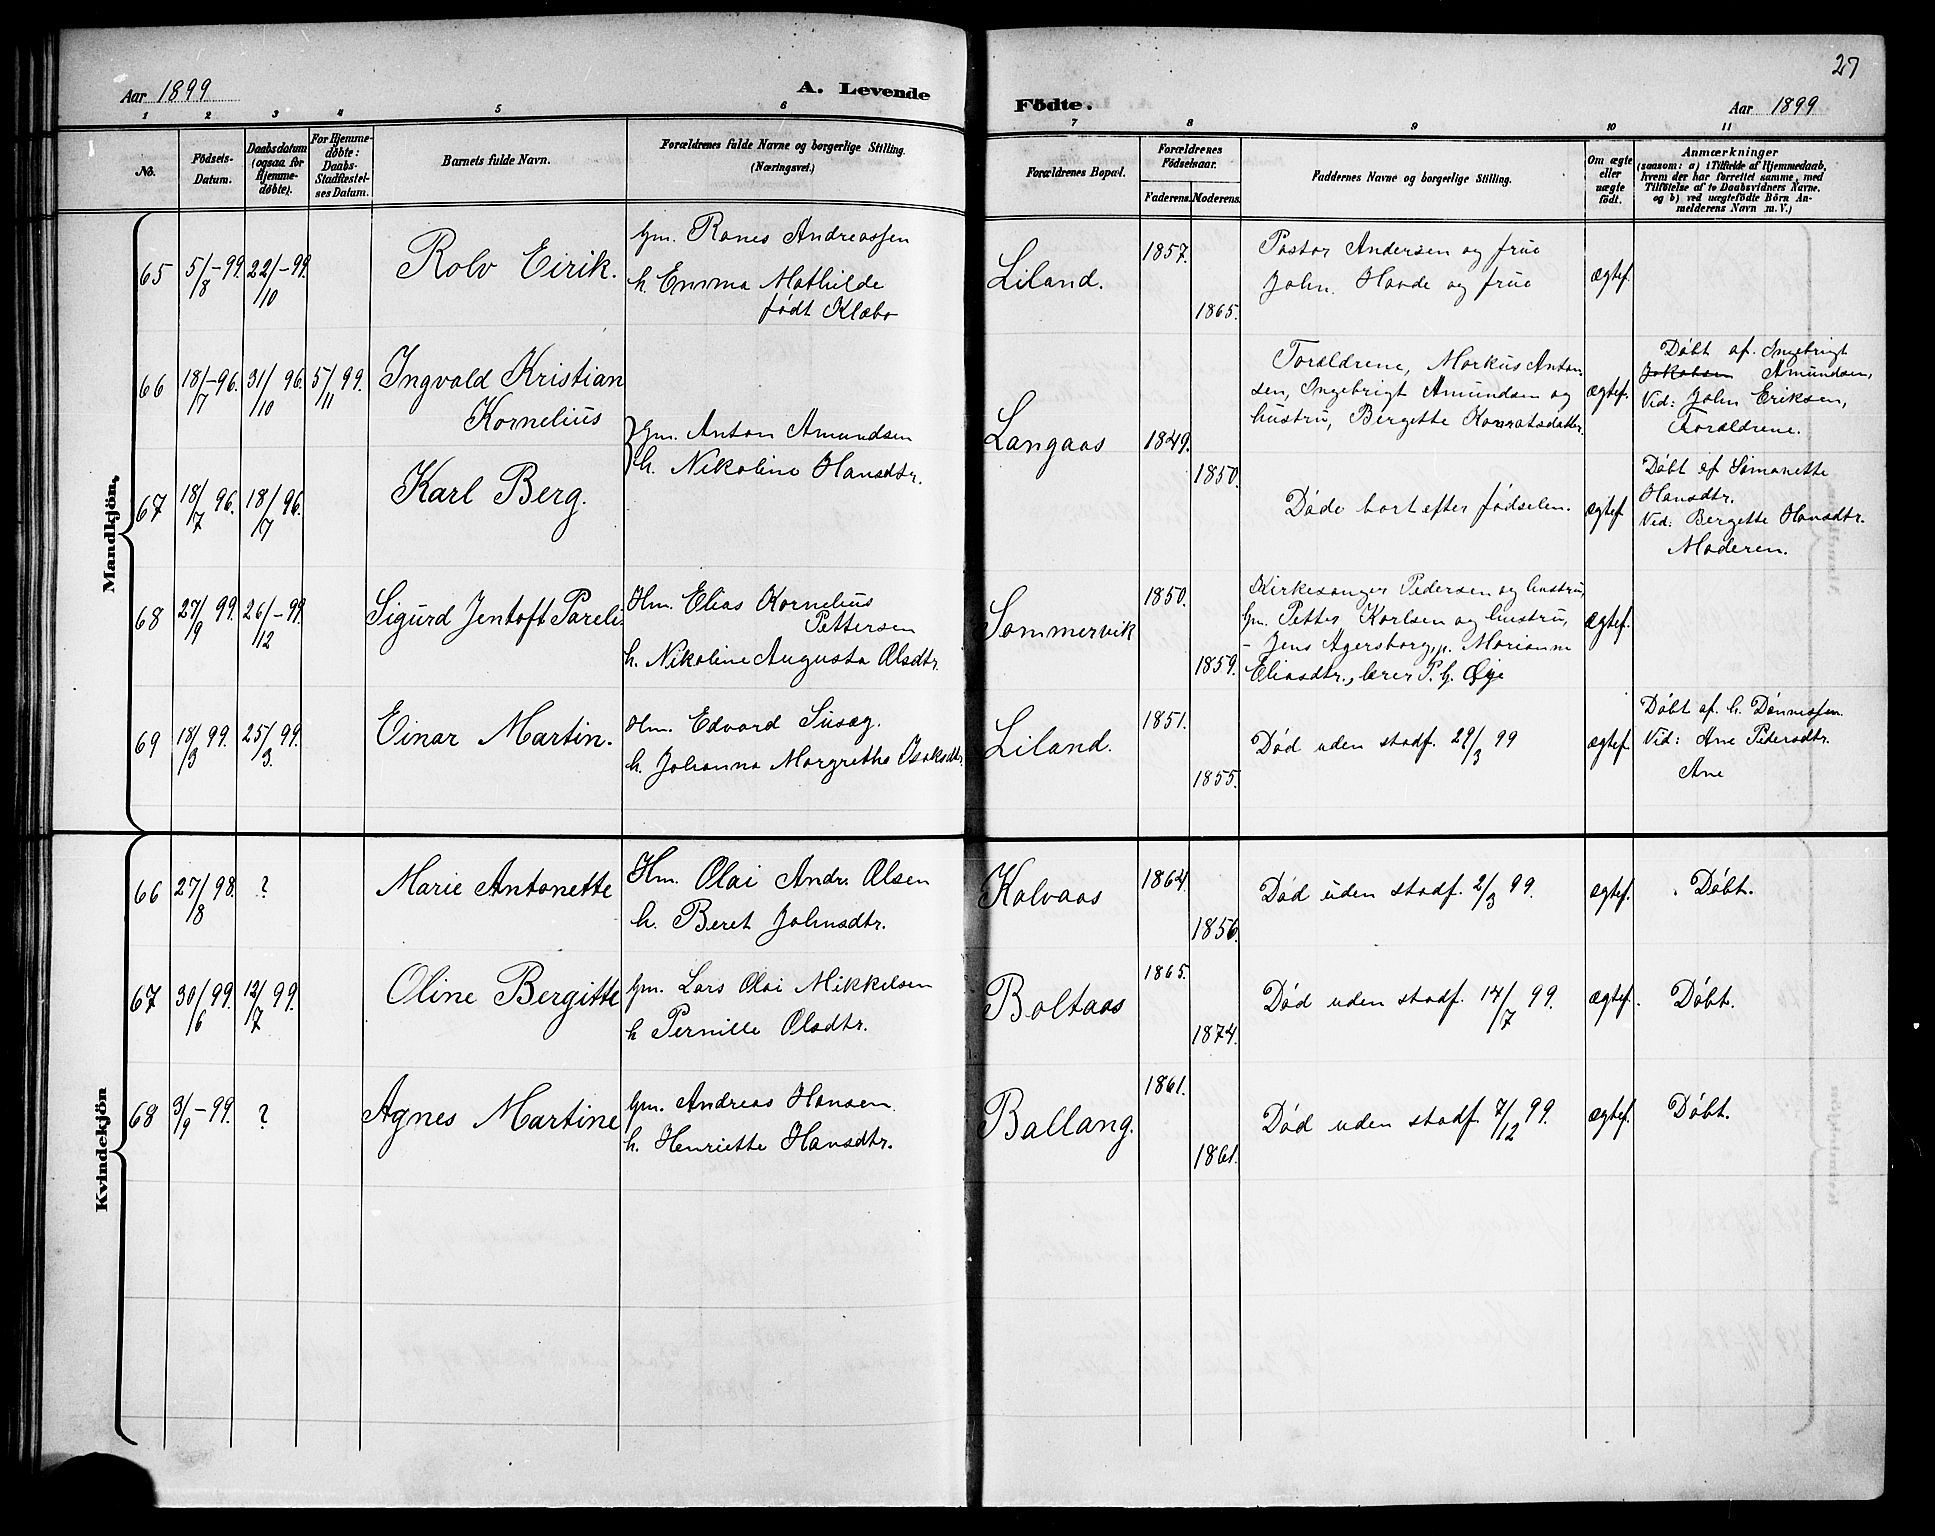 27
Aar 1899
A. Levende
Födte.
Aar 1899
1 2 3 4 5 6 7 8 9 10 11
No.
Fødsels-
Datum.
Daabsdatum
(ogsaa for
Hjemme-
døbte).
For Hjemme-
døbte:
Daabs-
Stadfæstel-
ses Datum.
Barnets fulde Navn.
Forældrenes fulde Navne og borgerlige Stilling.
(Næringsvei.)
Forældrenes Bopæl.
Forældrenes
Fødselsaar.
Faderens. Moderens.
Faddernes Navne og borgerlige Stilling.
Om ægte
eller
uægte
født.
Anmærkninger
(saasom: a) i Tilfælde af Hjemmedaab,
hvem der har forrettet samme, med
Tilføielse af to Daabsvidners Navne.
og b) ved uægtefødte Börn An-
melderens Navn m. V.)
Mandkjön.
65 5/8-99. 22/10-99. Rolv Eirik.
Gm. Ranes Andreassen
h. Emma Mathilde
født Klæbo
Liland. 1857. 1865.
Pastor Andersen og frue
John. Havde og frue
ægtef.
66 18/7-96. 31/10 96. 5/11 99. Ingvald Kristian
Kornelius
Gm. Anton Amundsen
h. Nikoline Hansdtr.
Langaas 1849. 1850.
Forældrene, Markus Anton-
sen, Ingebrigt Amundsen og
hustru, Bergette Konratsdatter.
ægtef.
Døbt af. Ingebrigt
Jakobsen Amundsen,
Vid: John Eriksen,
Forældrene.
67 18/7 96. 18/7 96. Karl Berg.
Døde kort efter fødselen.
ægtef
Døbt af Simonette
Hansdtr.
Vid: Bergette Hansdtr.
Moderen.
68 27/9 99. 26/12-99. Sigurd Jentoft Pareli
Hm. Elias Kornelius
Pettersen
h. Nikoline Augusta Olsdtr.
Sommervik 1850. 1859.
Kirkesanger Pedersen og hustru,
Gm. Petter Karlsen og hustru,
- Jens Agersborg, p. Marianne
Eliasdtr., lærer P. G. Øye
ægtef.
69 18/3 99. 25/3 99. Einar Martin.
Hm. Edvard Susæg.
h. Johanna Margrethe Isaksdtr.
Liland. 1851. 1855.
Død uden stadf. 29/3 99
ægtef.
Døbt af. h. Dønnessen
Vid: Ane Pedersdtr.
Ane
Kvindekjön
66 27/8 98. ? Marie Antonette
Hm. Olai Andr. Olsen
h. Beret Johnsdtr.
Kalvaas 1864. 1856.
Død uden stadf. 2/3 99.
ægtef.
Døbt.
67 30/6 99. 12/7 99. Oline Bergitte
Gm. Lars Olai Mikkelsen
h Pernille Olsdtr.
Boltaas 1865. 1874.
Død uden stadf. 14/7 99.
ægtef.
Døbt.
68 3/9-99. ? Agnes Martine
Gm. Andreas Hansen
h. Henriette Hansdtr.
Ballang. 1861. 1861.
Død uden stadf. 7/12 99.
ægtef.
Døbt.